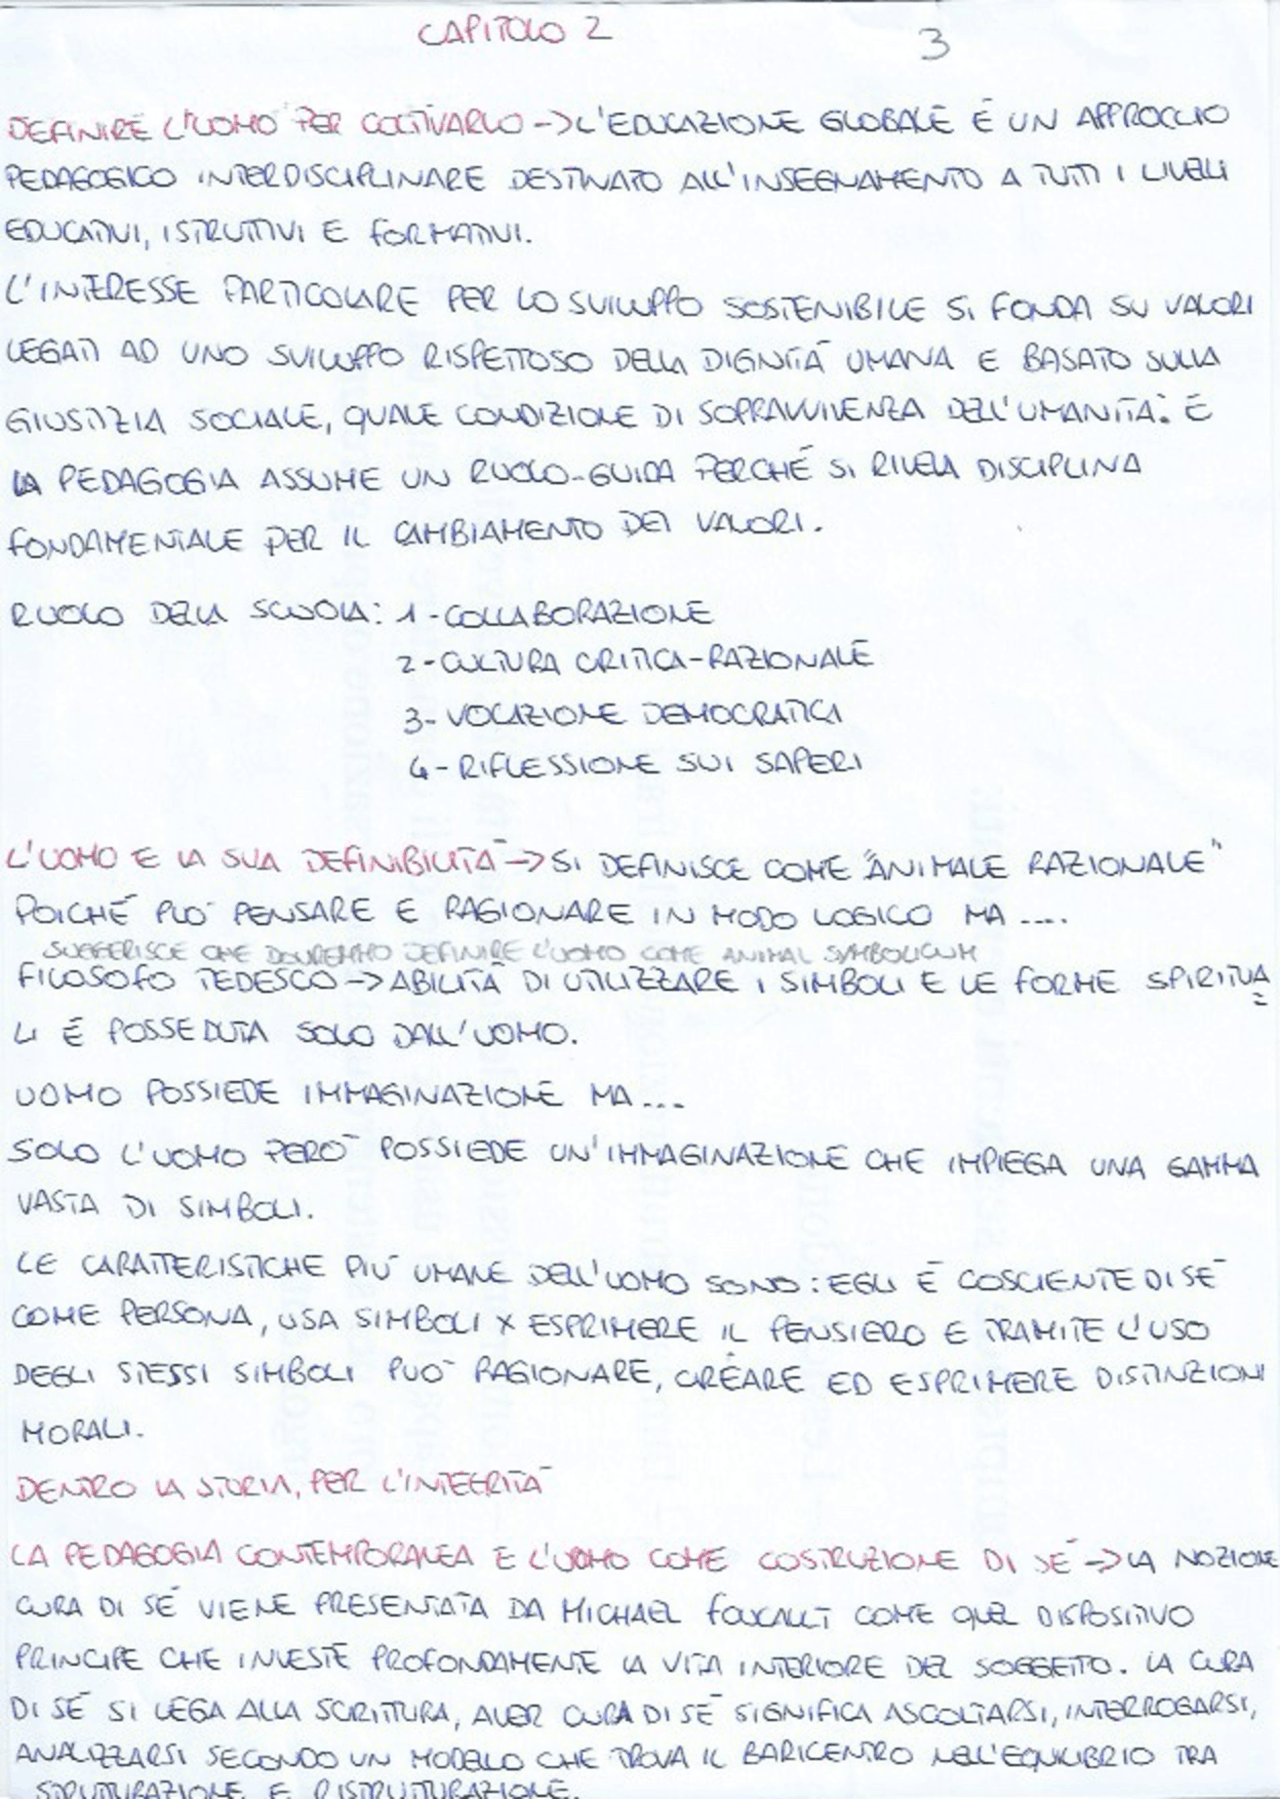 CAPITOLO 2
3
DEFINIRE L'UOMO PER COLTIVARLO -> L'EDUCAZIONE GLOBALE È UN APPROCCIO
PEDAGOGICO INTERDISCIPLINARE DESTINATO ALL'INSEGNAMENTO A TUTTI I LIVELLI
EDUCATIVI, ISTRUTTIVI E FORMATIVI.
L'INTERESSE PARTICOLARE PER LO SVILUPPO SOSTENIBILE SI FONDA SU VALORI
LEGATI AD UNO SVILUPPO RISPETTOSO DELLA DIGNITÀ UMANA E BASATO SULLA
GIUSTIZIA SOCIALE, QUALE CONDIZIONE DI SOPRAVVIVENZA DELL'UMANITÀ: E
LA PEDAGOGIA ASSUME UN RUOLO-GUIDA PERCHÉ SI RIVELA DISCIPLINA
FONDAMENTALE PER IL CAMBIAMENTO DEI VALORI.
RUOLO DELLA SCUOLA: 1-COLLABORAZIONE
2-CULTURA CRITICA-RAZIONALE
3-VOCAZIONE DEMOCRATICA
4-RIFLESSIONE SUI SAPERI
L'UOMO E LA SUA DEFINIBILITÀ -> SI DEFINISCE COME "ANIMALE RAZIONALE"
POICHÉ PUÒ PENSARE E RAGIONARE IN MODO LOGICO MA ....
SUGGERISCE CHE DOVREMMO DEFINIRE L'UOMO COME ANIMAL SYMBOLICUM
FILOSOFO TEDESCO -> ABILITÀ DI UTILIZZARE I SIMBOLI E LE FORME SPIRITUA=
LI È POSSEDUTA SOLO DALL'UOMO.
UOMO POSSIEDE IMMAGINAZIONE MA...
SOLO L'UOMO PERÒ POSSIEDE UN'IMMAGINAZIONE CHE IMPIEGA UNA GAMMA
VASTA DI SIMBOLI.
LE CARATTERISTICHE PIÙ UMANE DELL'UOMO SONO: EGLI È COSCIENTE DI SÉ
COME PERSONA, USA SIMBOLI X ESPRIMERE IL PENSIERO E TRAMITE L'USO
DEGLI STESSI SIMBOLI PUÒ RAGIONARE, CREARE ED ESPRIMERE DISTINZIONI
MORALI.
DENTRO LA STORIA, PER L'INTEGRITÀ
LA PEDAGOGIA CONTEMPORANEA E L'UOMO COME COSTRUZIONE DI SÉ -> LA NOZIONE
CURA DI SÉ VIENE PRESENTATA DA MICHAEL FOUCAULT COME QUEL DISPOSITIVO
PRINCIPE CHE INVESTE PROFONDAMENTE LA VITA INTERIORE DEL SOGGETTO. LA CURA
DI SÉ SI LEGA ALLA SCRITTURA, AVER CURA DI SÉ SIGNIFICA ASCOLTARSI, INTERROGARSI,
ANALIZZARSI SECONDO UN MODELLO CHE TROVA IL BARICENTRO NELL'EQUILIBRIO TRA
STRUTTURAZIONE E RISTRUTTURAZIONE.